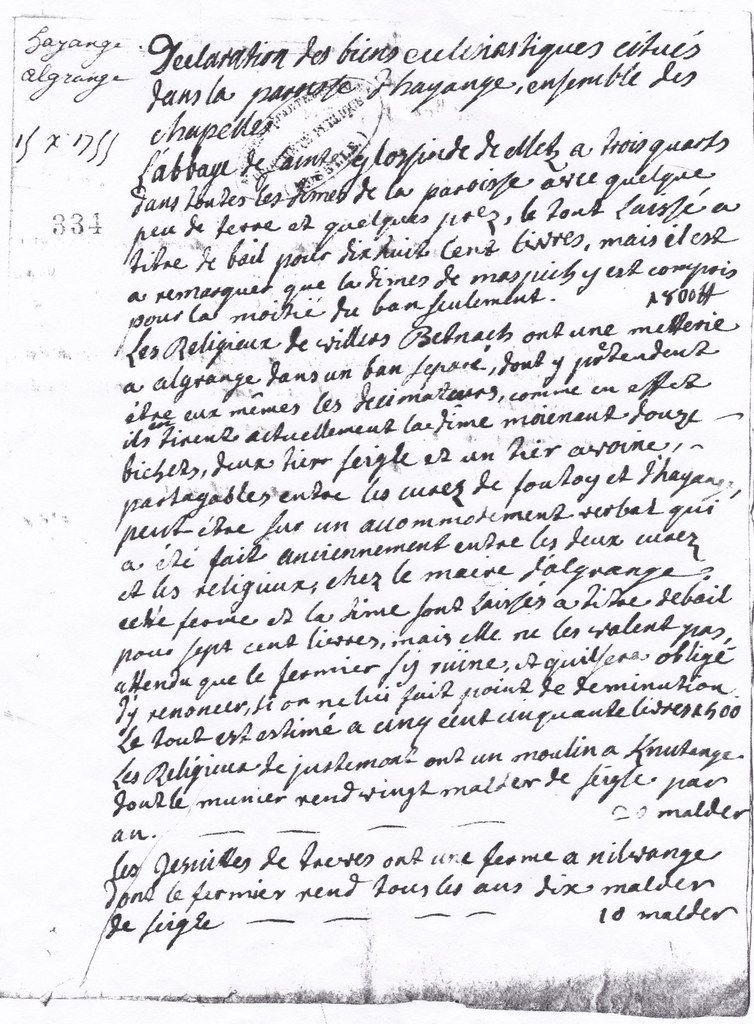 hayange
algrange
15 x 1755
334
Declaration des biens eccleisiastiques citués
dans la paroisse d'hayange, ensemble des
chapelles
L'abbaye de sainte glossinde de Metz a trois quarts
dans toutes les dimes de la paroisse avec quelque
peu de terre et quelques prez, le tout laissé a
titre de bail pour dix huit cent livres, mais il est
a remarquer que la dimes de marspich y est compris
pour la moitié du ban seulement. 1800 tt
Les Religieux de willers Betnach ont une metterie
a algrange dans un ban separé, dont y prétendent
être eux mêmes les decimateurs, comme en effet
ils en tirent actuellement la dime moienant douze
bichets, deux tier seigle et un tier avoine,
partagables entre les curez de fontoy et d'hayange,
peut être sur un accommodement verbal qui
a été fait anciennement entre les deux curez
et les religieux, chez le maire d'algrange,
cette ferme et la dime sont laissés a titre de bail
pour sept cent livres, mais elle ne les valent pas,
attendu que le fermier s'y ruine, et quil sera obligé
d'y renoncer, si on ne lui fait point de deminution.
Le tout est estimé a cinq cent cinquante livres
Les Religieux de justemont ont un moulin a Knutange
dont le munier rend vingt malder de seigle par
an. — — — — 20 malder
les Jesuittes de treves ont une ferme a nilvange
dont le fermier rend tous les ans dix malder
de seigle — — — — 10 malder